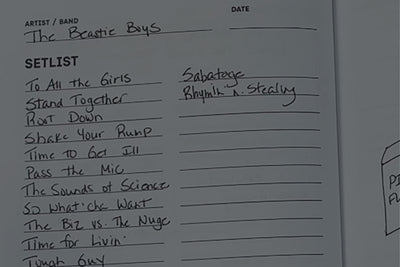 ARTIST / BAND
The Beastie Boys
DATE
SETLIST
To All the Girls
Stand Together
Root Down
Shake Your Rump
Time to Get Ill
Pass the Mic
The Sounds of Science
So What'cha Want
The Biz vs. The Nuge
Time for Livin'
Tough Guy
Sabatoge
Rhymin n. Stealing